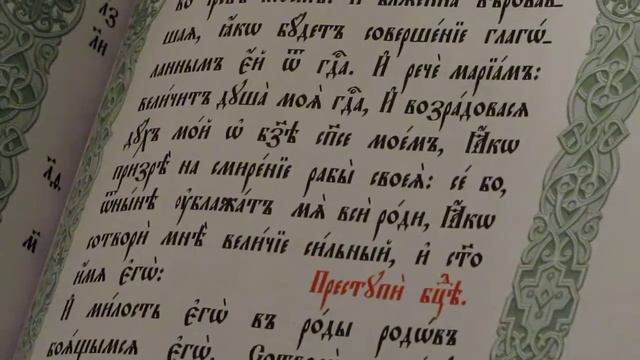 шаѧ, ꙗ҆́кѡ бꙋ́детъ соверше́нїе глаго́-
ланнымъ є҆́й ѿ гдⷭ҇а. И҆ речѐ марїа́мъ:
вели́читъ дꙋша̀ моѧ̀ гдⷭ҇а, и҆ возра́довасѧ
дꙋ́хъ мо́й ѡ҆ бз҃ѣ сп҃се мое́мъ, ꙗ҆́кѡ
призрѣ̀ на смире́нїе рабы̀ своеѧ̀: се́ бо,
ѿны́нѣ ᲂу҆блажа́тъ мѧ̀ всѝ ро́ди, ꙗ҆́кѡ
сотворѝ мнѣ̀ вели́чїе си́льный, и҆ ст҃о
и҆́мѧ є҆гѡ̀:
Престꙋпѝ бцⷣѣ.
И҆ ми́лость є҆гѡ̀ въ ро́ды родѡ́въ
боѧ́щымсѧ є҆гѡ̀.